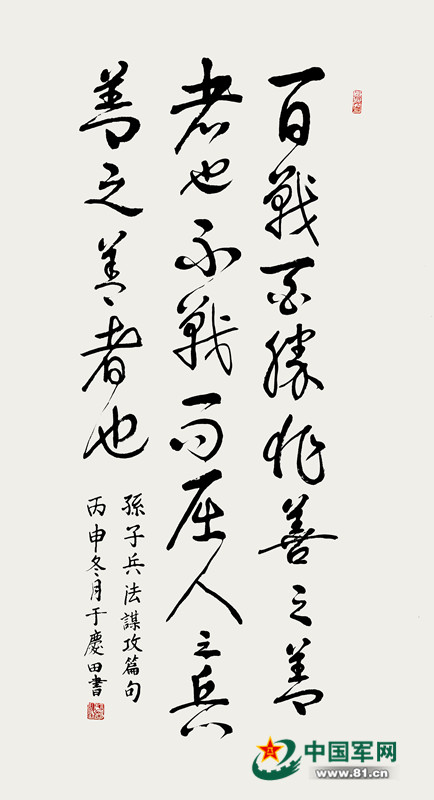 百戰百勝非善之善
者也不戰而屈人之兵
善之善者也
孫子兵法謀攻篇句
丙申冬月于慶田書
中国军网
www.81.cn